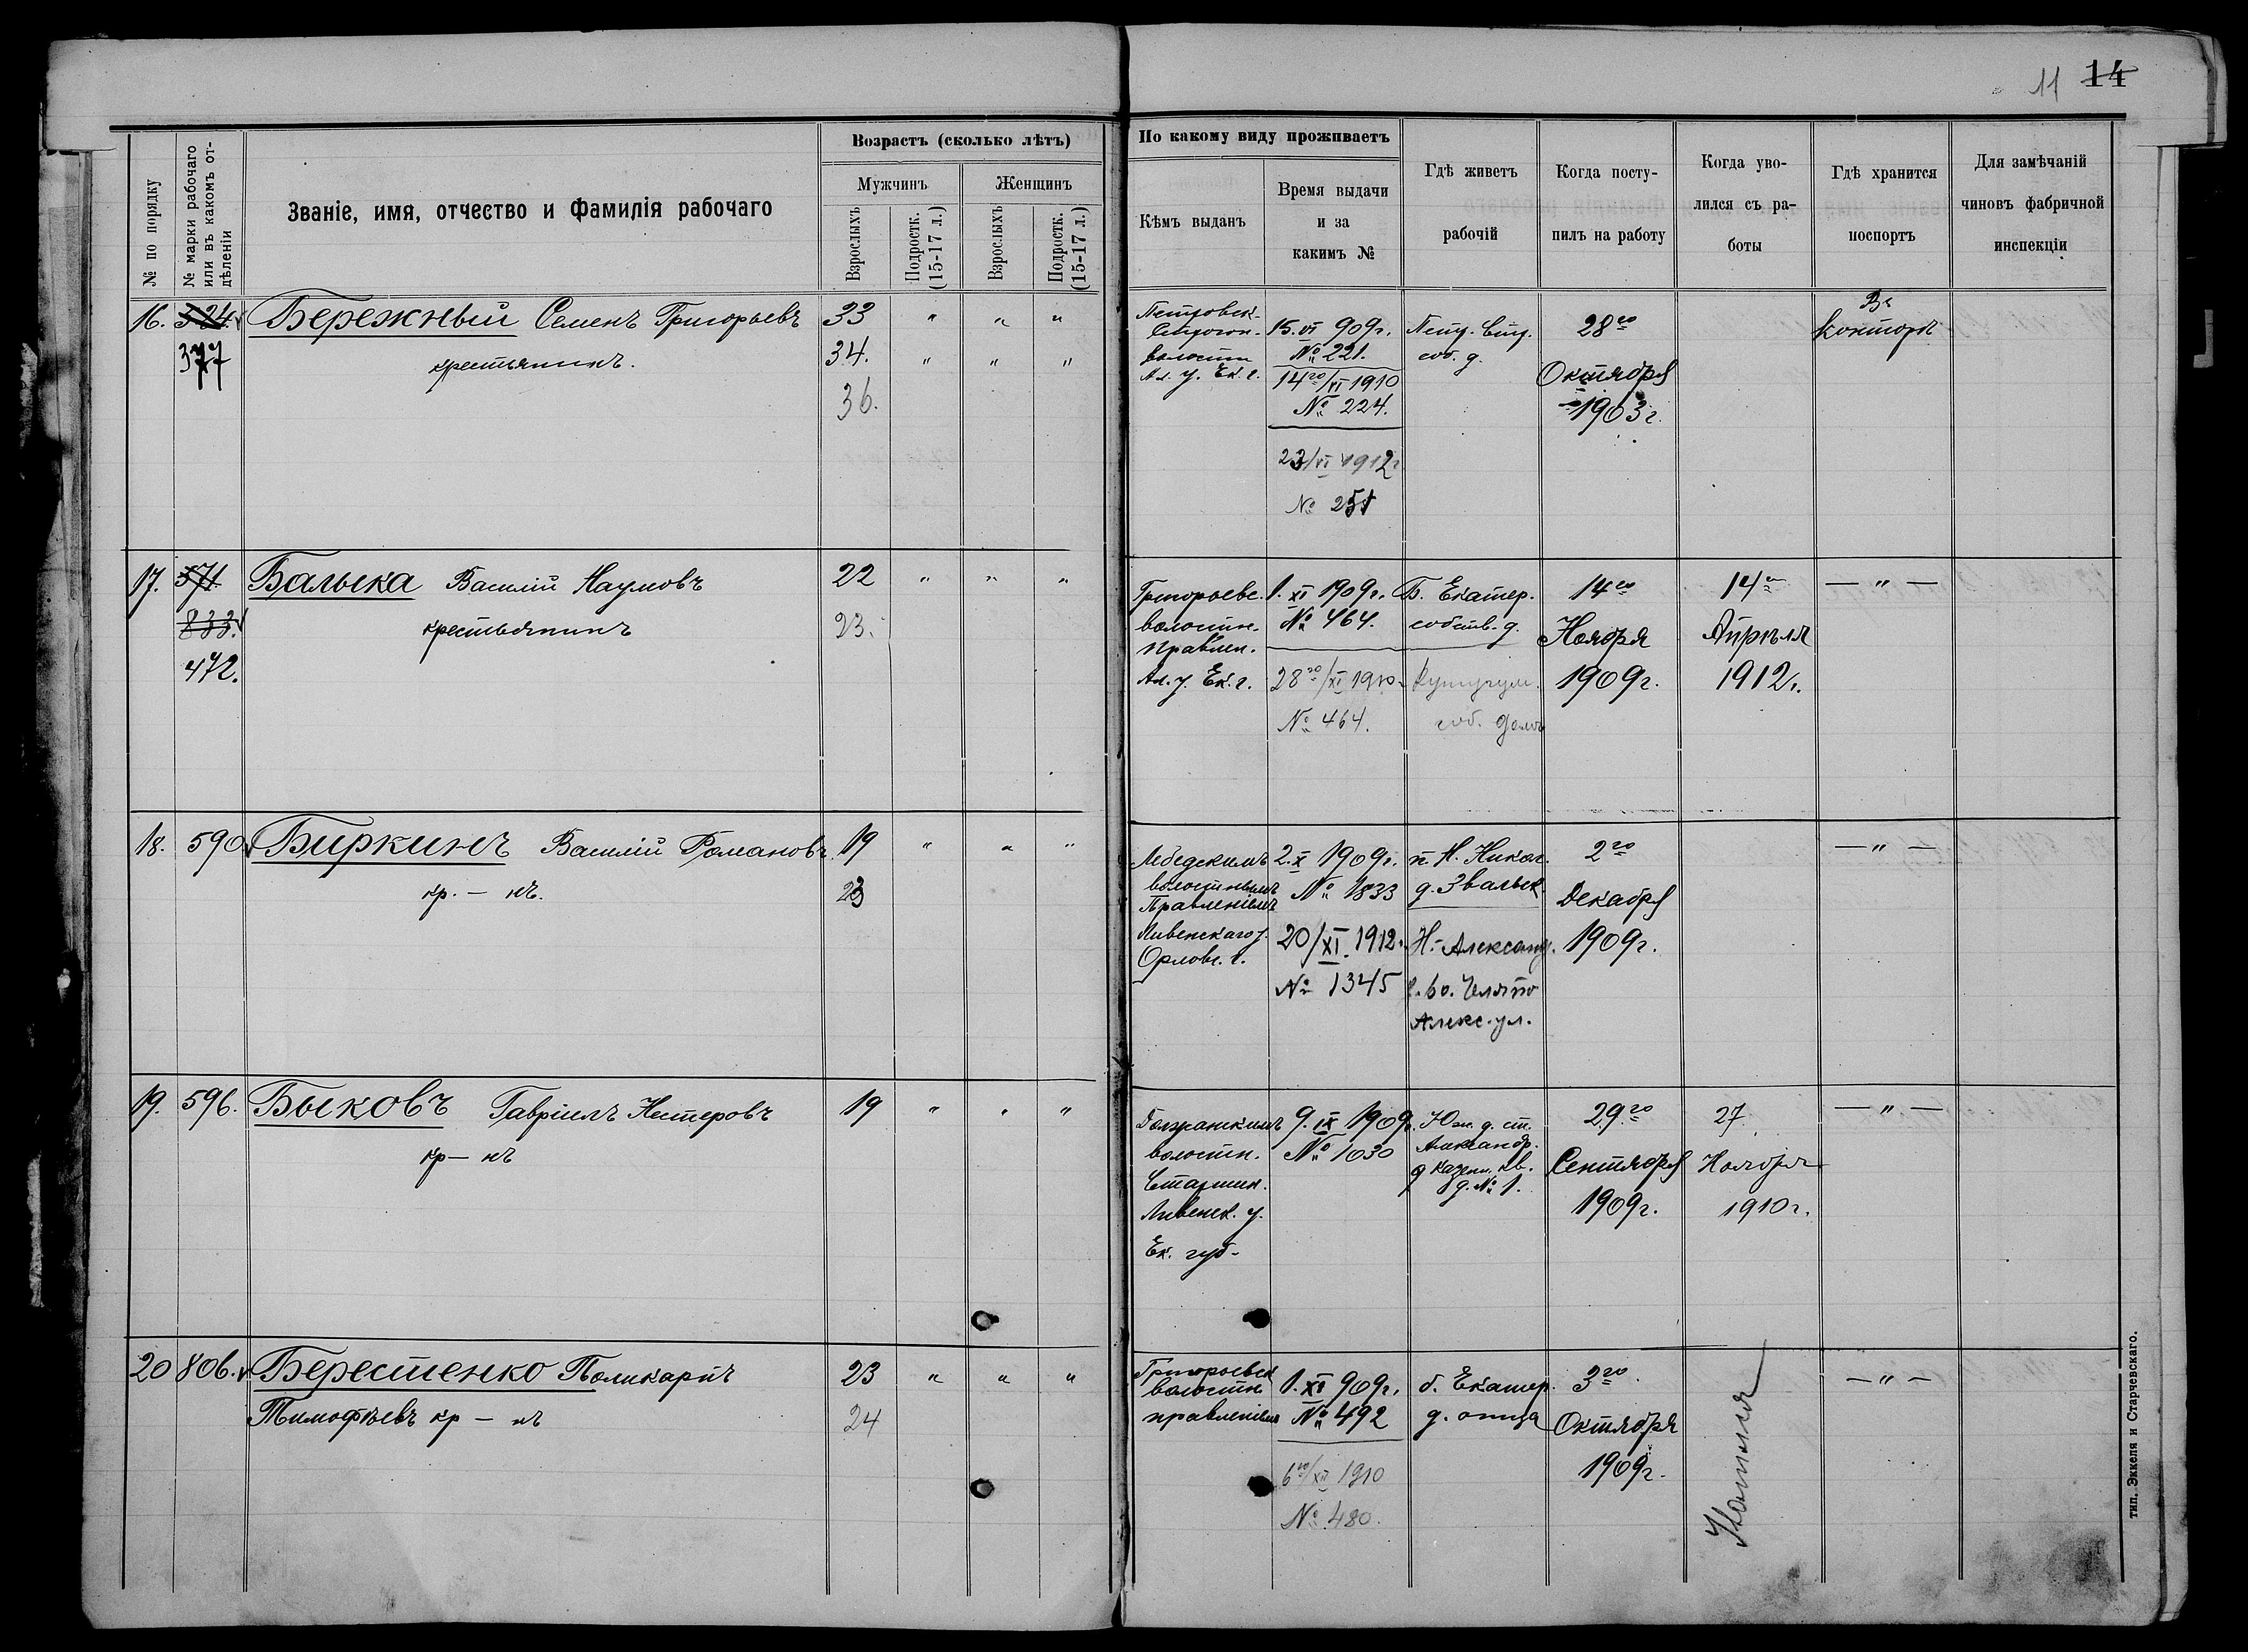 11 14
№ по порядку
№ марки рабочаго
или въ какомъ от-
дѣленіи
Званіе, имя, отчество и фамилія рабочаго
Возрастъ (сколько лѣтъ)
Мужчинъ
Женщинъ
Взрослыхъ
Подростк.
(15-17 л.)
Взрослыхъ
Подростк.
(15-17 л.)
По какому виду проживаетъ
Кѣмъ выданъ
Время выдачи
и за
какимъ №
Гдѣ живетъ
рабочій
Когда посту-
пилъ на работу
Когда уво-
лился съ ра-
боты
Гдѣ хранится
поспортъ
Для замѣчаній
чиновъ фабричной
инспекціи
16. 324. Бережный Семенъ Григорьевъ 33 " " "
377 крестьянинъ. 34. " " "
36.
Петровск.
волостн.
Ал. у. Ек. г.
15.VI 909г.
№ 221.
14го/VI 1910
№ 224.
23/VI 1912г
№ 251
Петр.
соб. д.
28го
Октября
1903г.
Въ
конторѣ
17. 571 Балыка Василій Наумовъ 22 " " "
833. крестьянинъ 23.
472.
Григорьевс.
волостн.
правлен.
Ал. у. Ек. г.
1.XI 1909г.
№ 464.
28го/XI 1910
№ 464.
Б. Екатер.
собств. д.
соб. домъ
14го
Ноября
1909г.
14го
Апрѣля
1912г.
— " —
18. 590 Биркинъ Василій Романовъ 19 " " "
кр. — нъ. 23
волостнымъ
Правленіемъ
Ливенскаго у.
Орловс. г.
2.X 1909г.
№ 1833
20/XI 1912г.
№ 1345
п. Н. Никол.
Н.-Александр.
Алекс. ул.
2го
Декабря
1909г.
— " —
19. 596. Быковъ Гавріилъ Нестеровъ 19 " " "
кр — нъ
волостн.
Старшин.
Ливенск. у.
Ек. губ.
9.IX 1909г.
№ 1030
Юж. д. ст.
Александр.
д. казен. кв.
д. № 1.
29го
Сентября
1909г.
27
Ноября
1910г.
— " —
20 806. Берестенко Поликарпъ 23 " " "
Тимофѣевъ кр — нъ 24
Григорьевск
волостн
правленіемъ
1.XI 909г.
№ 492
6го/XII 1910
№ 480.
б. Екатер.
д. отца
3го
Октября
1909г.
— " —
тип. Эккеля и Старчевскаго.